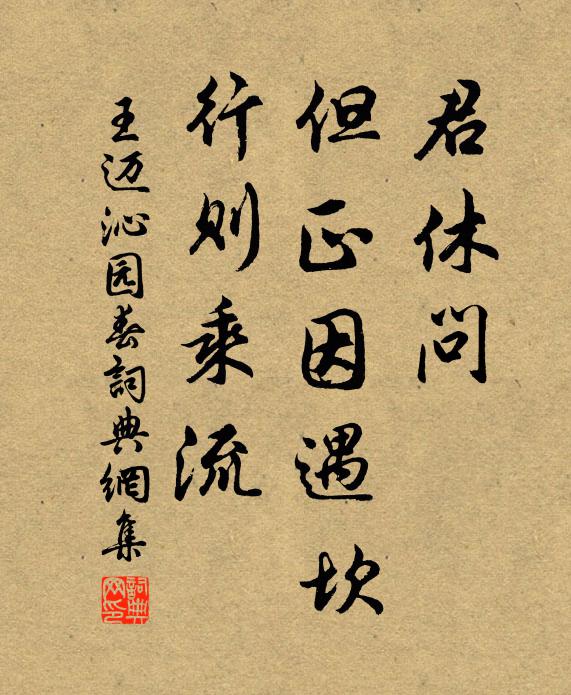 君休问
但正因遇坎
行则乘流
王迈沁园春詞典網集
詞典网印